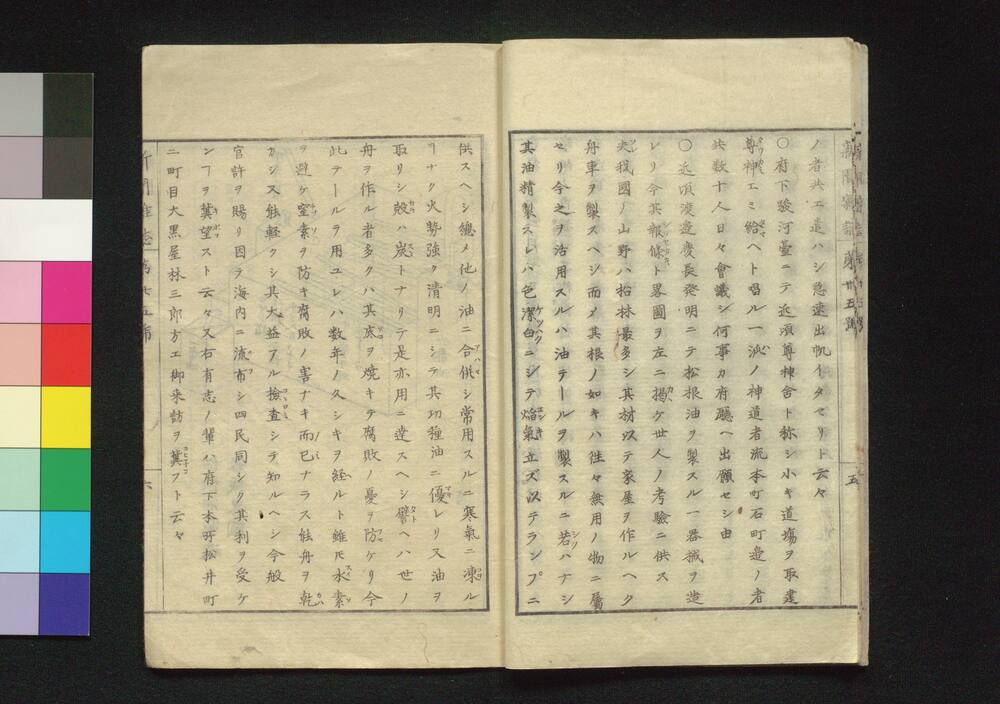 ノ者共エ遣ハシ急速出帆イタセリト云々
〇府下駿河臺ニテ近頃尊神舎ト称シ小キ道場ヲ取建
尊神エミ給ヘト唱ル一派ノ神道者流本町石町邉ノ者
共数十人日々會議シ何事カ府廳ヘ出願セシ由
〇近頃渡邉慶長発明ニテ松根油ヲ製スル一器械ヲ造
レリ今其報條ト畧圖ヲ左ニ掲ケ世人ノ考驗ニ供ス
夫我國ノ山野ハ松林最多シ其材以テ家屋ヲ作ルヘク
舟車ヲ製スヘシ而ノ其根ノ如キハ徃々無用ノ物ニ属
セリ今之ヲ活用スルハ油テールヲ製スルニ若ハナシ
其油精製スレハ色潔白ニシテ焔氣立ズ以テランプニ
供スヘシ總メ他ノ油ニ合供シ常用スルニ寒氣ニ凍ル
ヿナク火勢強ク清明ニシテ其功種油ニ優レリス油ヲ
取リシ殻ハ炭トナリテ是亦用ニ達スヘシ譬ヘハ世ノ
舟ヲ作ル者多クハ其底ヲ焼キテ腐敗ノ憂ヲ防ケリ今
此テールヲ用ユレハ数年ノ久シキヲ経ルト雖𪜈水素
ヲ避ケ窒素ヲ防キ腐敗ノ害ナキ而已ナラス能舟ヲ乾
カシス能軽クシ其大益アル檢査シテ知ルヘシ今般
官許ヲ賜リ因テ海内ニ流布シ四民同シク其利ヲ受ケ
ンヿヲ冀望スト云々又右有志ノ輩ハ府下本所松井町
二町目大黒屋林三郎方エ御来訪ヲ冀フト云々